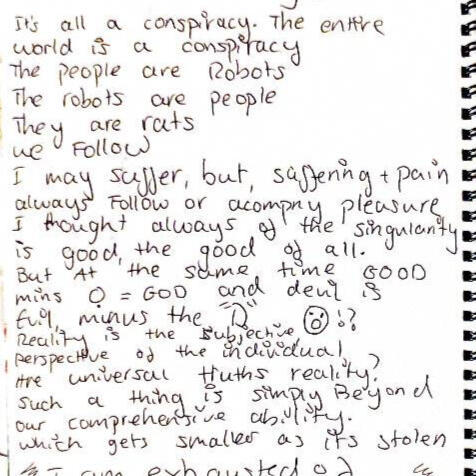 It's all a conspiracy. The entire
world is a conspiracy
The people are Robots
The robots are people
They are rats
we Follow
I may suffer, but, suffering + pain
always Follow or acompny pleasure
I thought always of the singularity
is good, the good of all.
But At the same time GOOD
mins O = GOD and devil is
Evil minus the "D" !?
Reality is the subjective
perspective of the individual
Are universal truths reality?
Such a thing is simply Beyond
our comprehensive ability.
which gets smaller as its stolen
I am exhausted